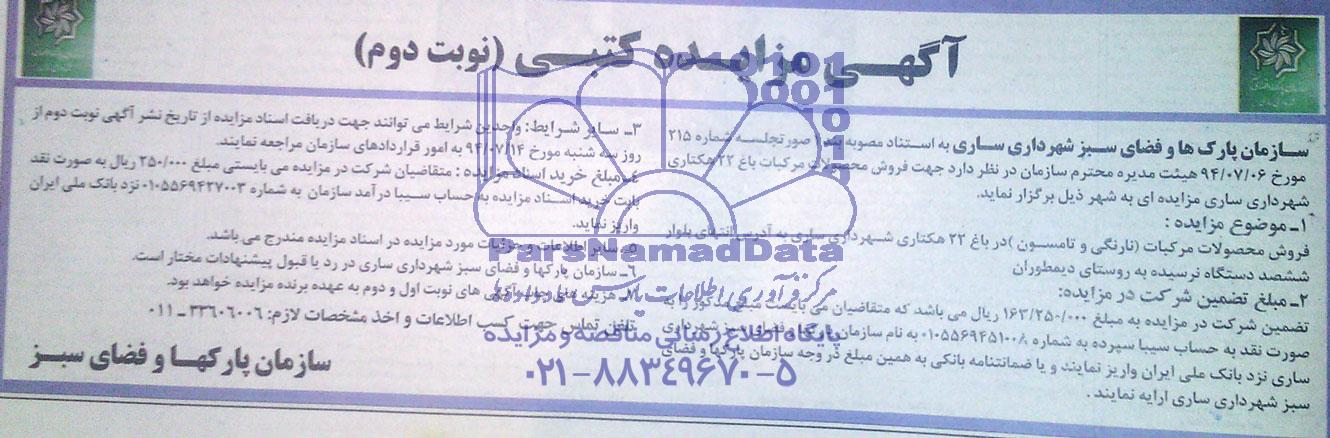 آگهی مزایده کتبی (نوبت دوم)
سازمان پارک ها و فضای سبز شهرداری ساری به استناد مصوبه بند ۱ صورتجلسه شماره ۲۱۵
مورخ ۹۴/۰۷/۰۶ هیئت مدیره محترم سازمان در نظر دارد جهت فروش محصولات مرکبات باغ ۲۲ هکتاری
شهرداری ساری مزایده ای به شهر ذیل برگزار نماید.
۱ـ موضوع مزایده :
فروش محصولات مرکبات (نارنگی و تامسون )در باغ ۲۲ هکتاری شهرداری ساری به آدرس انتهای بلوار
ششصد دستگاه نرسیده به روستای دیمطوران
۲ـ مبلغ تضمین شرکت در مزایده:
تضمین شرکت در مزایده به مبلغ ۱۶۳/۲۵۰/۰۰۰ ریال می باشد که متقاضیان می بایست مبلغ مذکور را به
صورت نقد به حساب سیبا سپرده به شماره ۰۱۰۵۵۶۹۴۵۱۰۰۸ به نام سازمان پارکها و فضای سبز شهرداری
ساری نزد بانک ملی ایران واریز نمایند و یا ضمانتنامه بانکی به همین مبلغ در وجه سازمان پارکها و فضای
سبز شهرداری ساری ارایه نمایند .
۳ـ سایر شرایط: واجدین شرایط می توانند جهت دریافت اسناد مزایده از تاریخ نشر آگهی نوبت دوم از
روز سه شنبه مورخ ۹۴/۰۷/۱۴ به امور قراردادهای سازمان مراجعه نمایند.
۴ـ مبلغ خرید اسناد مزایده : متقاضیان شرکت در مزایده می بایستی مبلغ ۲۵۰/۰۰۰ ریال به صورت نقد
بابت خرید اسناد مزایده به حساب سیبا درآمد سازمان به شماره ۰۱۰۵۵۶۹۴۲۷۰۰۳ نزد بانک ملی ایران
واریز نماید.
۵ـ سایر اطلاعات و جزئیات مورد مزایده در اسناد مزایده مندرج می باشد.
۶ـ سازمان پارکها و فضای سبز شهرداری ساری در رد یا قبول پیشنهادات مختار است.
۷ـ هزینه های چاپ آگهی های نوبت اول و دوم به عهده برنده مزایده خواهد بود.
تلفن تماس جهت کسب اطلاعات و اخذ مشخصات لازم: ۳۳۶۰۶۰۰۶ ـ ۰۱۱
سازمان پارکها و فضای سبز
ParsNamadData
مرکز فرآوری اطلاعات پارس نماد داده ها
پایگاه اطلاع رسانی مناقصه و مزایده
۰۲۱-۸۸۳۴۹۶۷۰-۵